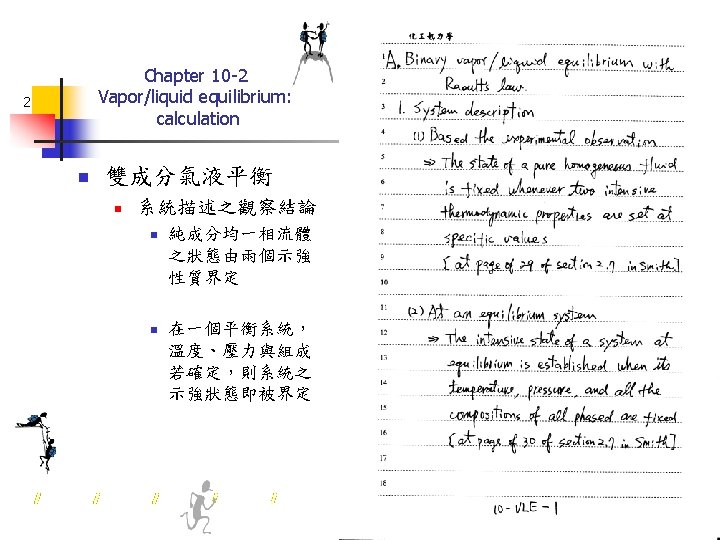 Chapter 10-2
Vapor/liquid equilibrium:
calculation
2
雙成分氣液平衡
系統描述之觀察結論
純成分均一相流體
之狀態由兩個示強
性質界定
在一個平衡系統，
溫度、壓力與組成
若確定，則系統之
示強狀態即被界定
化工熱力學
1 A. Binary vapor/liquid equilibrium with
2 Raoult's law.
3 1. System description
4 (1) Based the experimental observation
5 ⇒ The state of a pure homogeneous fluid
6 is fixed whenever two intensive
7 thermodynamic properties are set at
8 specific values
9 [at page of 29 of section 2.7 in Smith]
10
11 (2) At an equilibrium system
12 ⇒ The intensive state of a system at
13 equilibrium is established when its
14 temperature, pressure, and all the
15 compositions of all phased are fixed
16 [at page of 30 of section 2.7 in Smith]
17
18
10-VLE-1